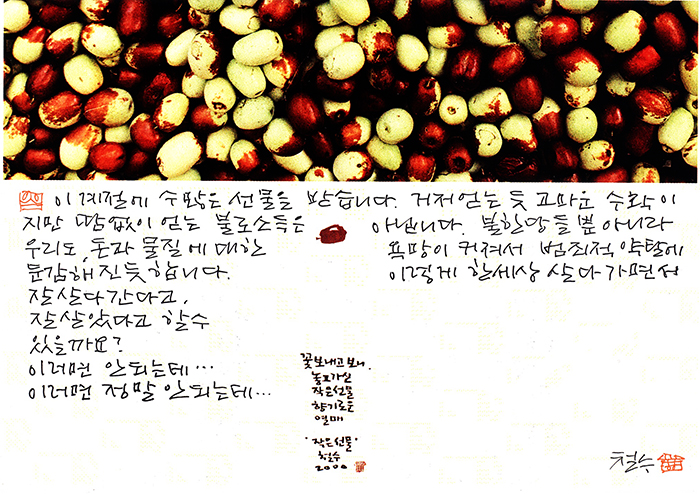 이 계절에 수많은 선물을 받습니다. 거저 얻는 듯 고마운 수확이
지만 땀없이 얻는 불로소득은 아닙니다. 불한당들뿐 아니라
우리도, 돈과 물질에 대한 욕망이 커져서 범죄적 약탈에
둔감해진듯 합니다. 이렇게 한세상 살다가면서
잘살다 간다고,
잘살았다고 할수
있을까요?
이러면 안되는데...
이러면 정말 안되는데...
꽃보내고 보니,
놓고가신
작은선물
향기로운
열매
"작은선물"
철수
2000
철수